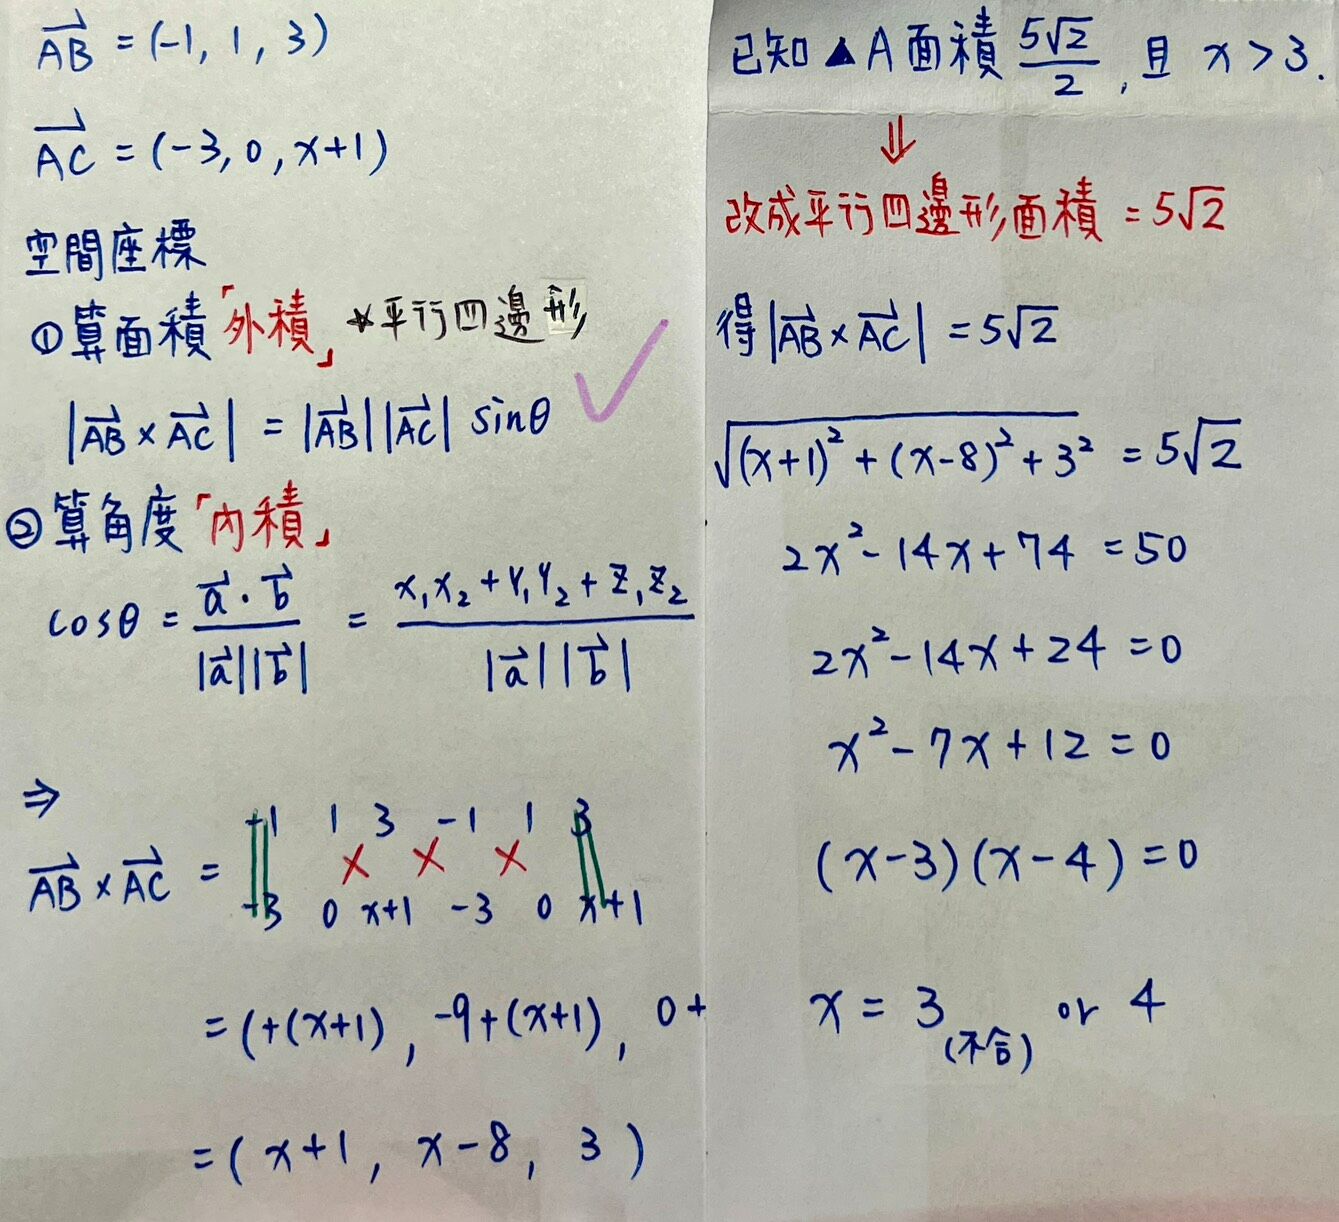 AB = (-1, 1, 3)
AC = (-3, 0, x+1)
空間座標
①算面積「外積」*平行四邊形
|AB×AC| = |AB||AC| sinθ
②算角度「內積」
cosθ = a·b / |a||b| = x₁x₂+Y₁Y₂+Z₁Z₂ / |a||b|
⇒
-1 1 3 -1 1 3
AB×AC =
-3 0 x+1 -3 0 x+1
=(+(x+1), -9+(x+1), 0+
=(x+1, x-8, 3)
已知▲A面積 5√2/2, 且 x>3.
⇓
改成平行四邊形面積 = 5√2
得|AB×AC| = 5√2
√(x+1)²+(x-8)²+3² = 5√2
2x²-14x+74 = 50
2x²-14x+24 = 0
x²-7x+12 = 0
(x-3)(x-4) = 0
x = 3 or 4
(不合)